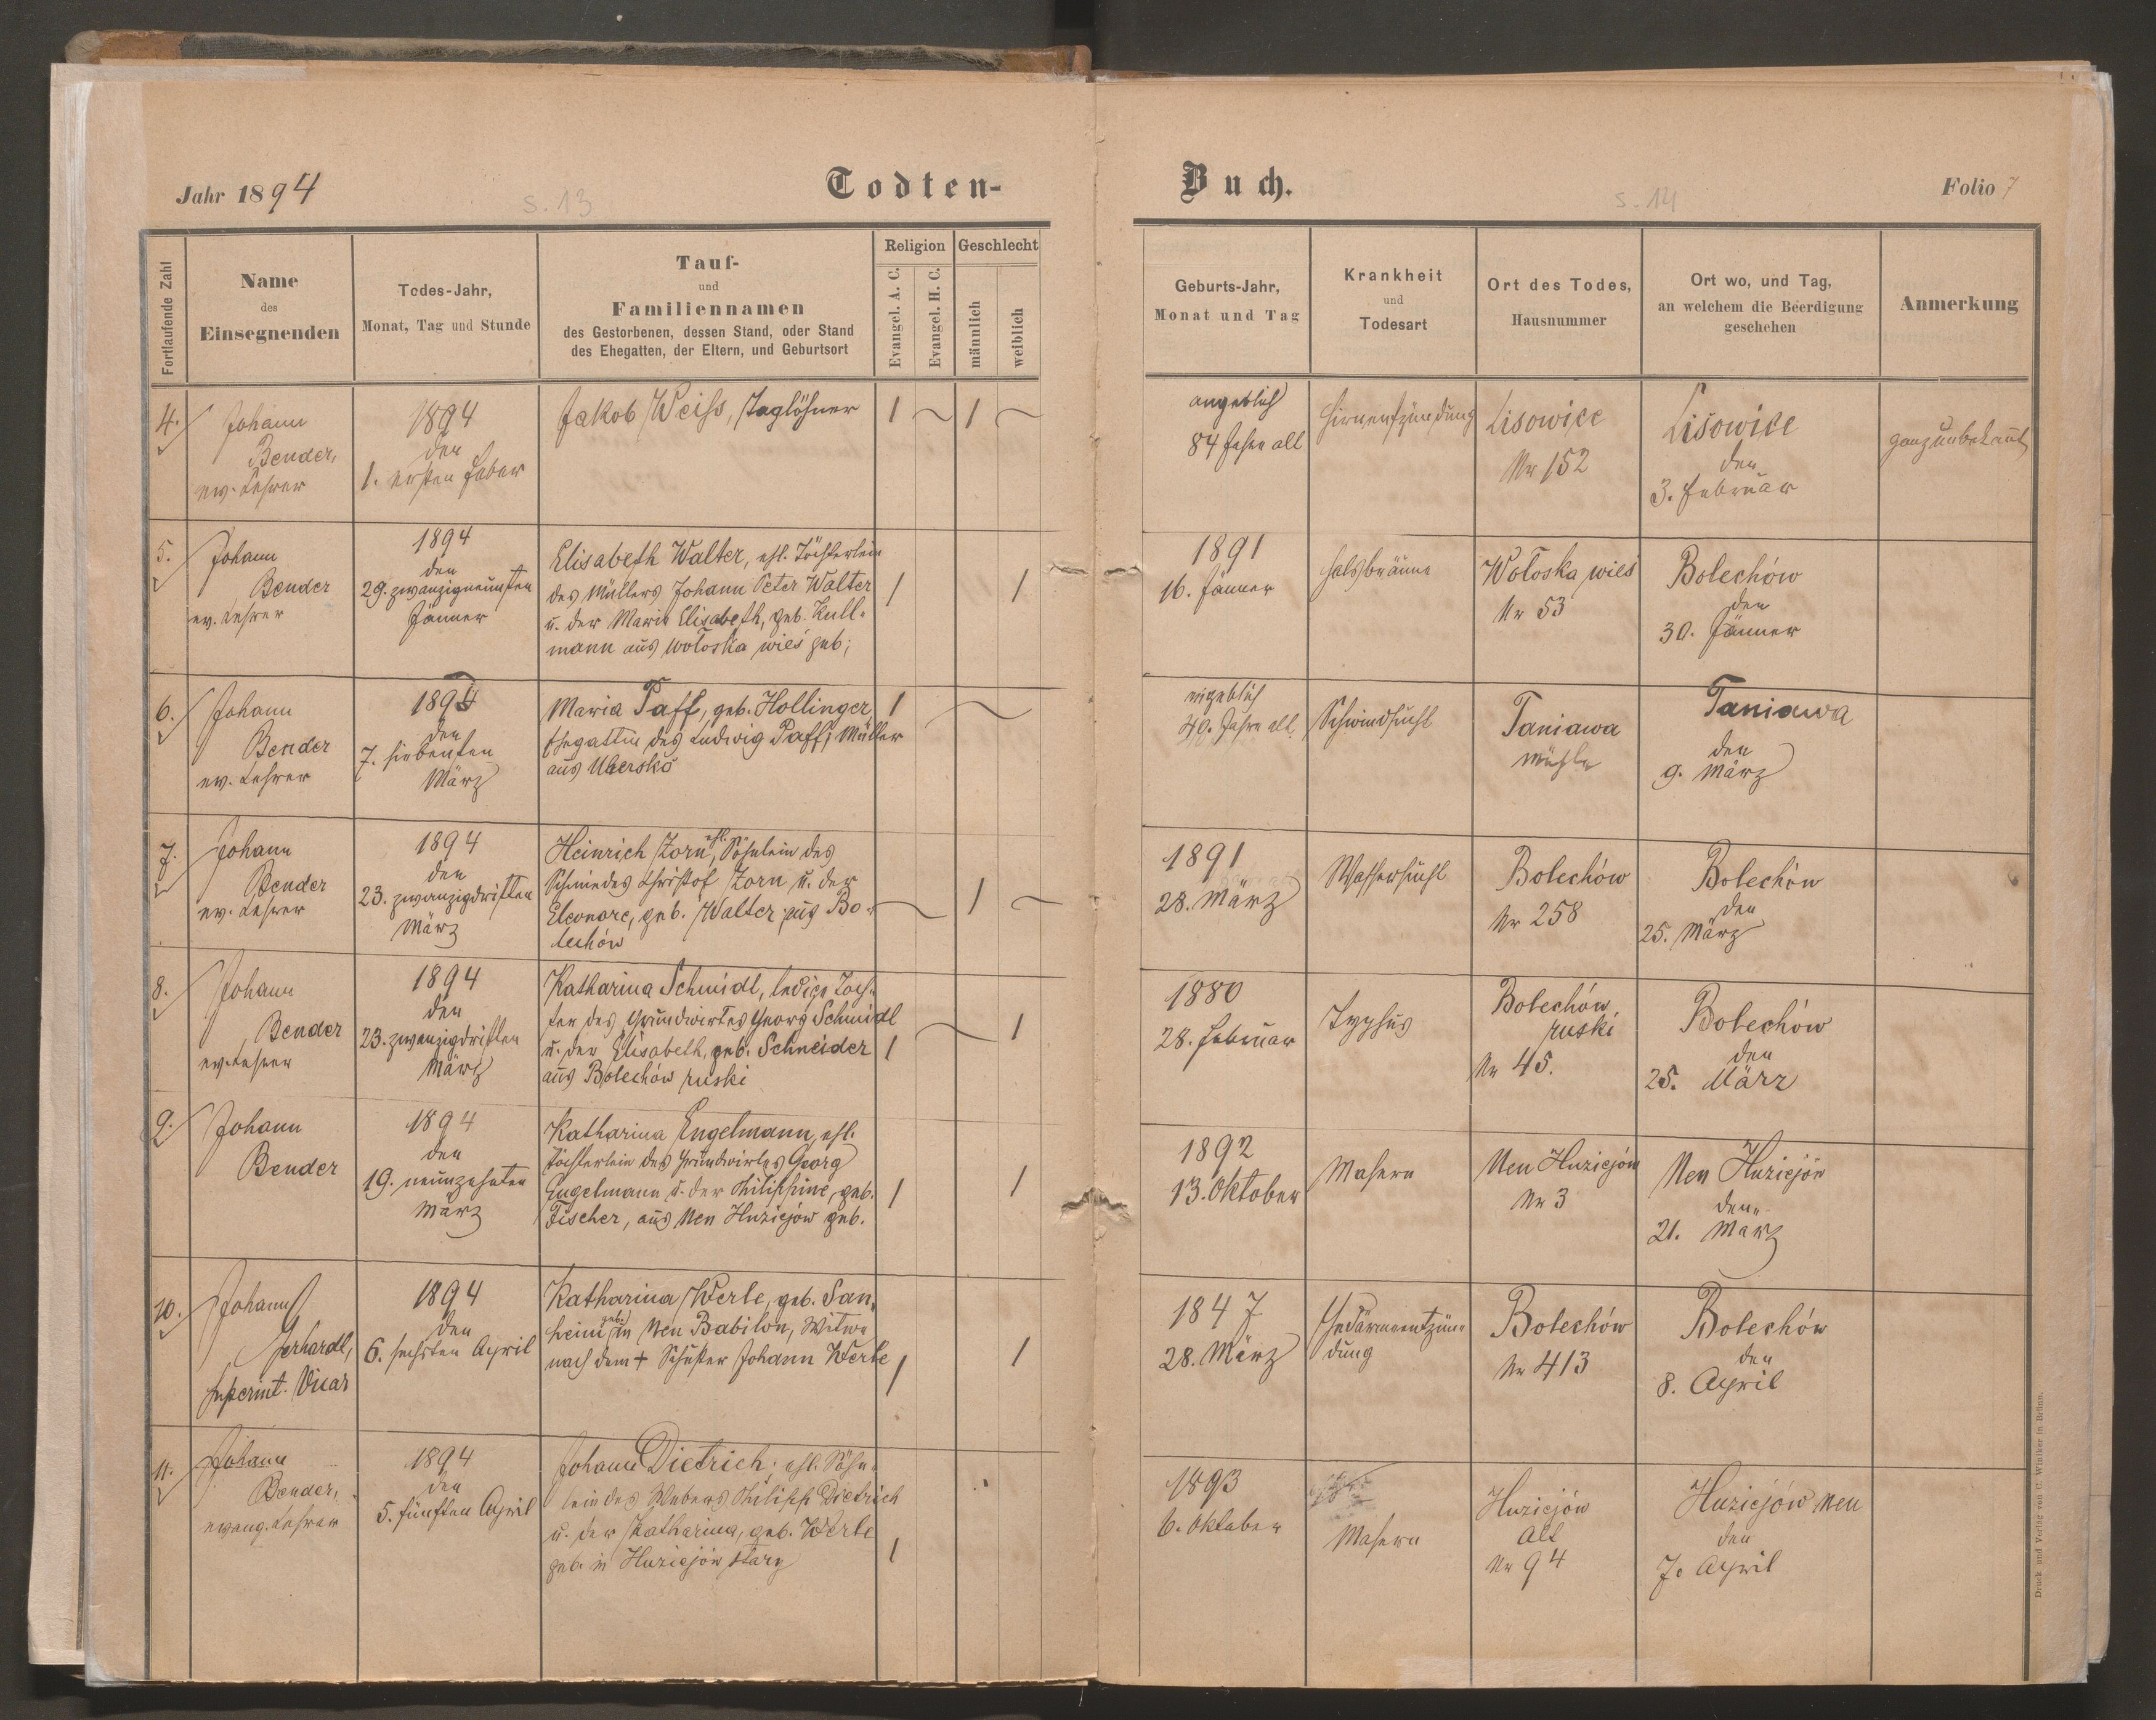 Jahr 1894
s. 13
Todten-
Fortlaufende Zahl
Name
des
Einsegnenden
Todes-Jahr,
Monat, Tag und Stunde
Tauf-
und
Familiennamen
des Gestorbenen, dessen Stand, oder Stand
des Ehegatten, der Eltern, und Geburtsort
Religion
Evangel. A. C.
Evangel. H. C.
Geschlecht
männlich
weiblich
4.
Johann
Bender,
ev. Lehrer
1894
den
1. ersten Feber
Jakob Weiss, Taglöhner
1 ~ 1 ~
5.
Johann
Bender
ev. Lehrer
1894
den
29. zwanzigneunten
Jänner
Elisabeth Walter, ehl. Töchterlein
des Müllers Johann Peter Walter
u. der Maria Elisabeth, geb. Kull-
mann aus Wołoska wieś geb;
1 1
6.
Johann
Bender
ev. Lehrer
1894
den
7. siebenten
März
Maria Paff, geb. Hollinger
Ehegattin des Ludwig Paff, Müller
aus Uhersko
1 ~
7.
Johann
Bender
ev. Lehrer
1894
den
23. zwanzigdritten
März
Heinrich Zorn, ehl. Söhnlein des
Schmiedes Christof Zorn u. der
Eleonore, geb. Walter, aus Bo-
lechów
~ 1 ~
8.
Johann
Bender
ev. Lehrer
1894
den
23. zwanzigdritten
März
Katharina Schmidt, ledige Toch-
ter des Grundwirtes Georg Schmidt
u. der Elisabeth, geb. Schneider
aus Bolechów ruski
1 ~ 1
9.
Johann
Bender
1894
den
19. neunzehnten
März
Katharina Engelmann, ehl.
Töchterlein des Grundwirtes Georg
Engelmann u. der Philippine, geb.
Fischer, aus Neu Huziejów geb.
1 1
10.
Johann
Gerhardt,
Superint. Vicar
1894
den
6. sechsten April
Katharina Werle, geb. San-
heim geb. in Neu Babilon, Witwe
nach dem + Schuster Johann Werle
1 1
11.
Johann
Bender,
evang. Lehrer
1894
den
5. fünften April
Johann Dietrich, ehl. Söhn-
lein des Webers Philipp Dietrich
u. der Katharina, geb. Werle
geb. in Huziejów stary
1
Buch.
s. 14
Folio 7
Geburts-Jahr,
Monat und Tag
Krankheit
und
Todesart
Ort des Todes,
Hausnummer
Ort wo, und Tag,
an welchem die Beerdigung
geschehen
Anmerkung
angeblich
84 Jahre alt
Hirnentzündung
Lisowice
Nr 152
Lisowice
den
3. Februar
ganz unbekannt
1891
16. Jänner
Halsbräune
Wołoska wieś
Nr 53
Bolechów
den
30. Jänner
angeblich
40. Jahre alt
Schwindsucht
Taniawa
mühle
Taniawa
den
9. März
1891
28. März
Wassersucht
Bolechów
Nr 258
Bolechów
den
25. März
1880
28. Februar
Typhus
Bolechów
ruski
Nr 45.
Bolechów
den
25. März
1892
13. Oktober
Masern
Neu Huziejów
Nr 3
Neu Huziejów
den
21. März
1847
28. März
Gedärmentzün-
dung
Bolechów
Nr 413
Bolechów
den
8. April
1893
6. Oktober
Masern
Huziejów
Alt
Nr 94
Huziejów neu
den
7. April
Druck und Verlag von C. Winiker in Brünn.